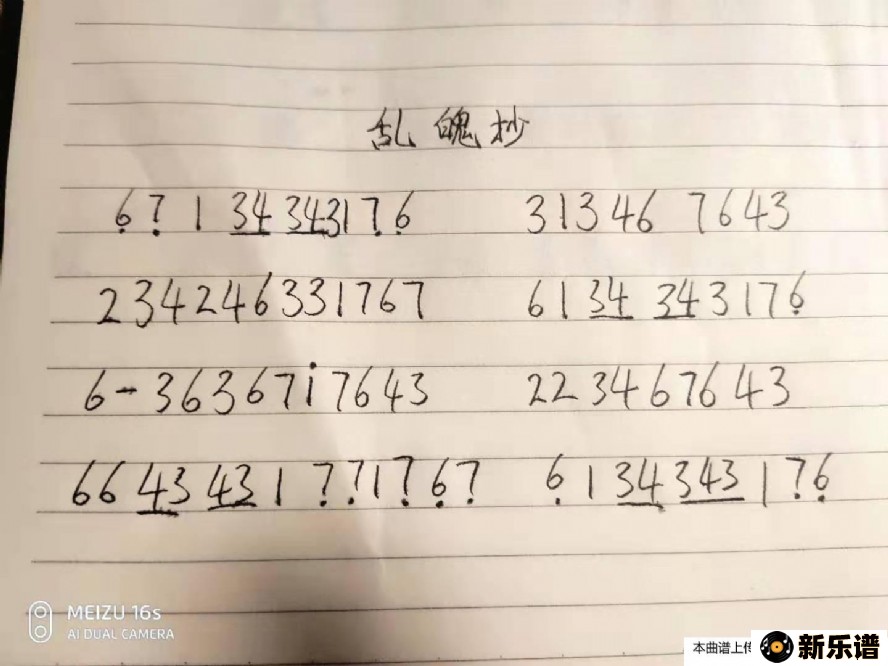 乱魄抄
6̣ 7̣ 1 3̲4̲ 3̲4̲3 1 7̣ 6̣ 3 1 3 4 6 7 6 4 3
2 3 4 2 4 6 3 3 1 7 6 7 6 1 3̲4̲ 3̲4̲ 3 1 7 6̣
6 - 3 6 3 6 7 1̇ 7 6 4 3 2 2 3 4 6 7 6 4 3
6 6 4̲3̲ 4̲3̲ 1 7̣ 7̣ 1 7̣ 6̣ 7̣ 6̣ 1 3̲4̲ 3̲4̲3̲ 1 7̣ 6̣
MEIZU 16s
AI DUAL CAMERA
本曲谱上传
新乐谱